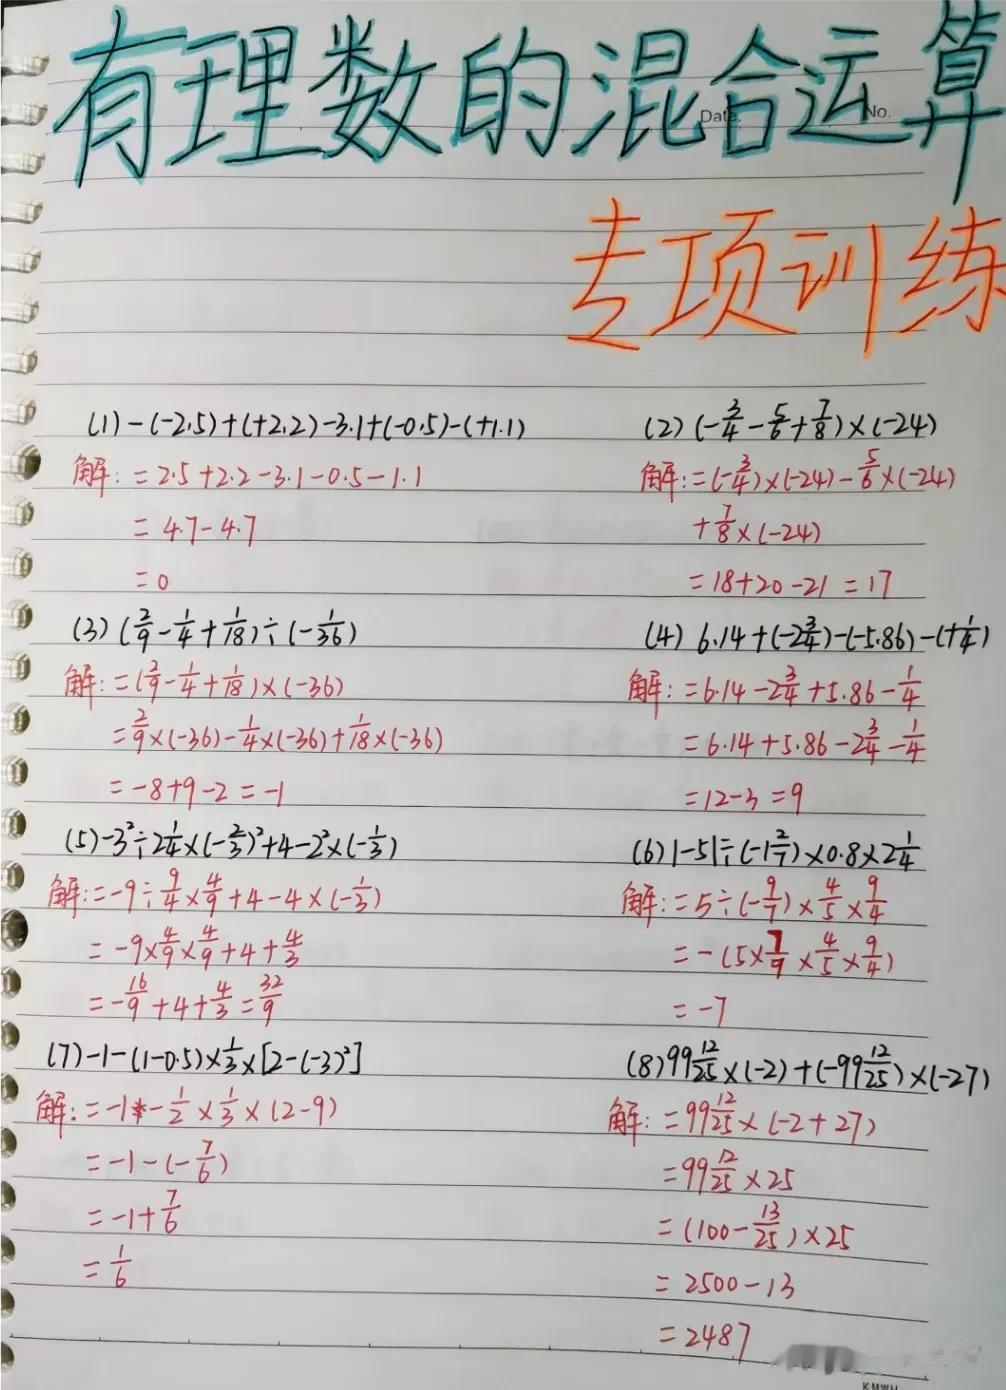 有理数的混合运算
Date. No.
专项训练
(1) -(-2.5)+(+2.2)-3.1+(-0.5)-(+1.1)
解: =2.5+2.2-3.1-0.5-1.1
=4.7-4.7
=0
(2) (-3/4-5/6+7/8)×(-24)
解: =(-3/4)×(-24)-5/6×(-24)
+7/8×(-24)
=18+20-21=17
(3) (2/9-1/4+1/18)÷(-1/36)
解: =(2/9-1/4+1/18)×(-36)
=2/9×(-36)-1/4×(-36)+1/18×(-36)
=-8+9-2=-1
(4) 6.14+(-2 3/4)-(-5.86)-(+1/4)
解: =6.14-2 3/4+5.86-1/4
=6.14+5.86-2 3/4-1/4
=12-3=9
(5) -3²÷2 1/4×(-2/3)²+4-2²×(-1/3)
解: =-9÷9/4×4/9+4-4×(-1/3)
=-9×4/9×4/9+4+4/3
=-16/9+4+4/3=32/9
(6) |-5|÷(-1 2/7)×0.8×2 1/4
解: =5÷(-9/7)×4/5×9/4
=-(5×7/9×4/5×9/4)
=-7
(7) -1-(1-0.5)×1/3×[2-(-3)²]
解: =-1-1/2×1/3×(2-9)
=-1-(-7/6)
=-1+7/6
=1/6
(8) 99 12/25×(-2)+(-99 12/25)×(-27)
解: =99 12/25×(-2+27)
=99 12/25×25
=(100-13/25)×25
=2500-13
=2487